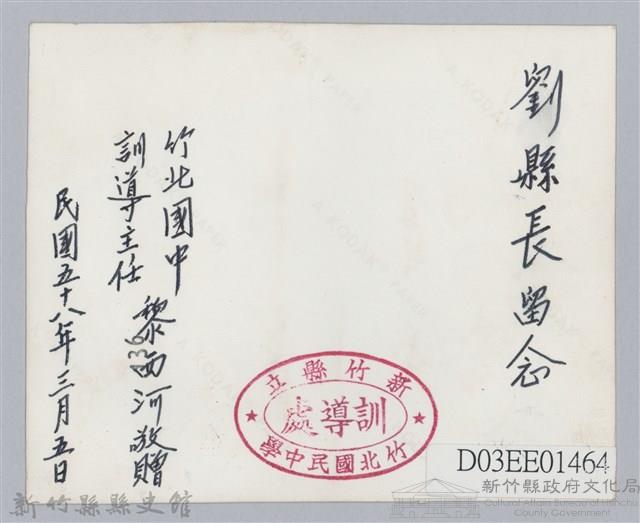 劉縣長留念
竹北國中
訓導主任 黎西河敬贈
民國五十八年三月五日
新竹縣立
訓導處
竹北國民中學
D03EE01464
新竹縣政府文化局
Cultural Affairs Bureau of Hsinchu County Government
新竹縣縣史館
A KODAK PAPER